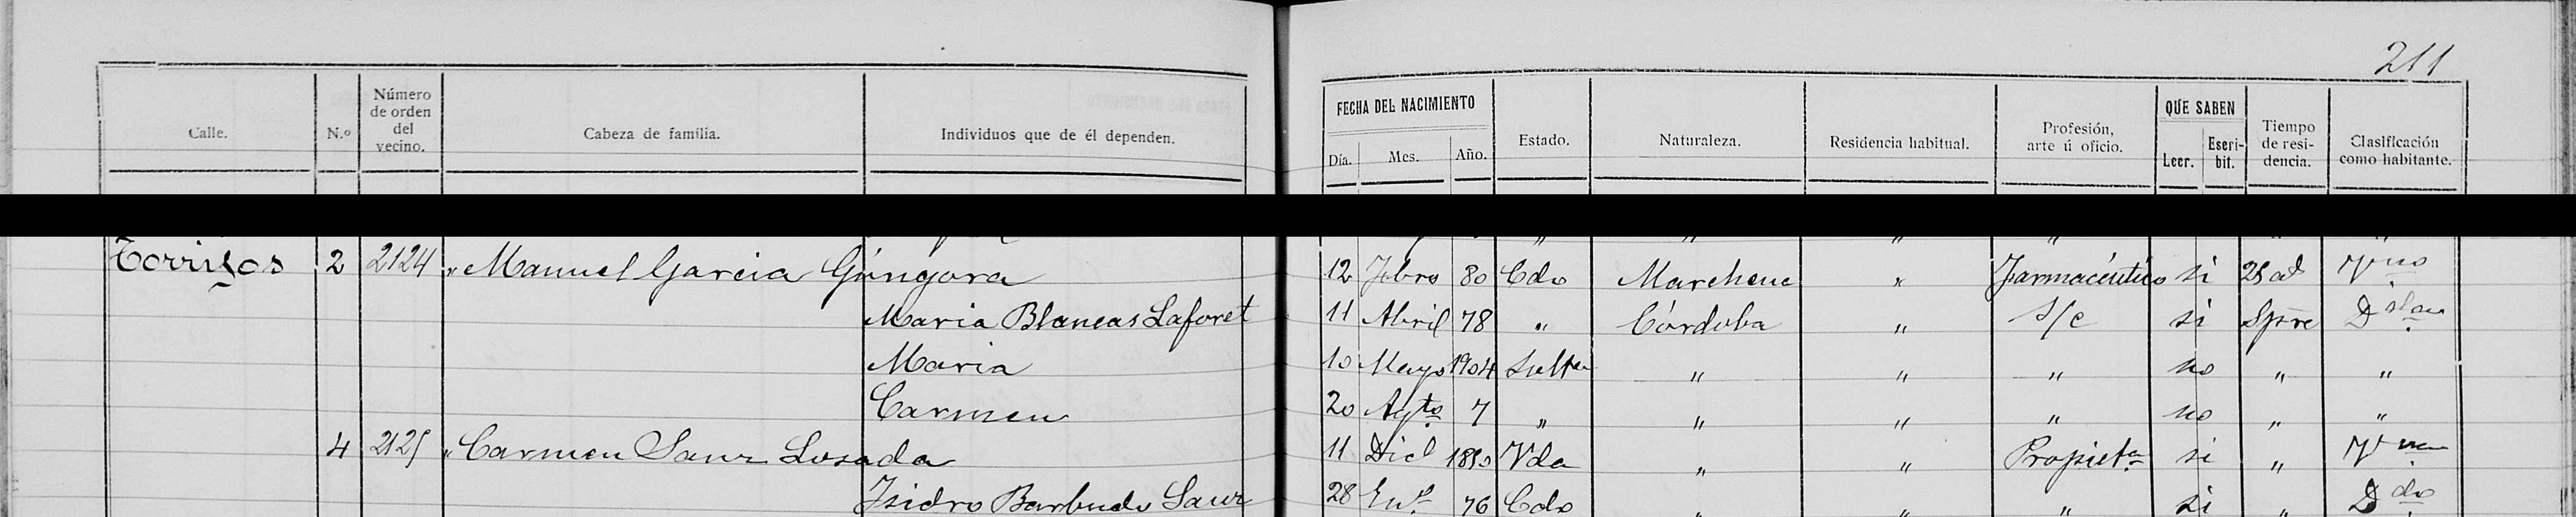 211
Calle. N.º Número de orden del vecino. Cabeza de familia. Individuos que de él dependen. FECHA DEL NACIMIENTO Día. Mes. Año. Estado. Naturaleza. Residencia habitual. Profesión, arte ú oficio. QUE SABEN Leer. Escribir. Tiempo de residencia. Clasificación como habitante.
Torrijos 2 2124 " Manuel Garcia Góngora 12 Febro 80 Cdo Marchena " Farmacéutico si 25 añ Vno
Maria Blancas Laforet 11 Abril 78 " Córdoba " S/c si Spre
Maria 10 Mayo 1904 Solta " " " no " "
Carmen 20 Agto 7 " " " " no " "
4 2125 " Carmen Sanz Losada 11 Dicl 1850 Vda " " Propieta si "
Isidro Barbudo Sanz 28 Eno 76 Cdo " " " si " Ddo